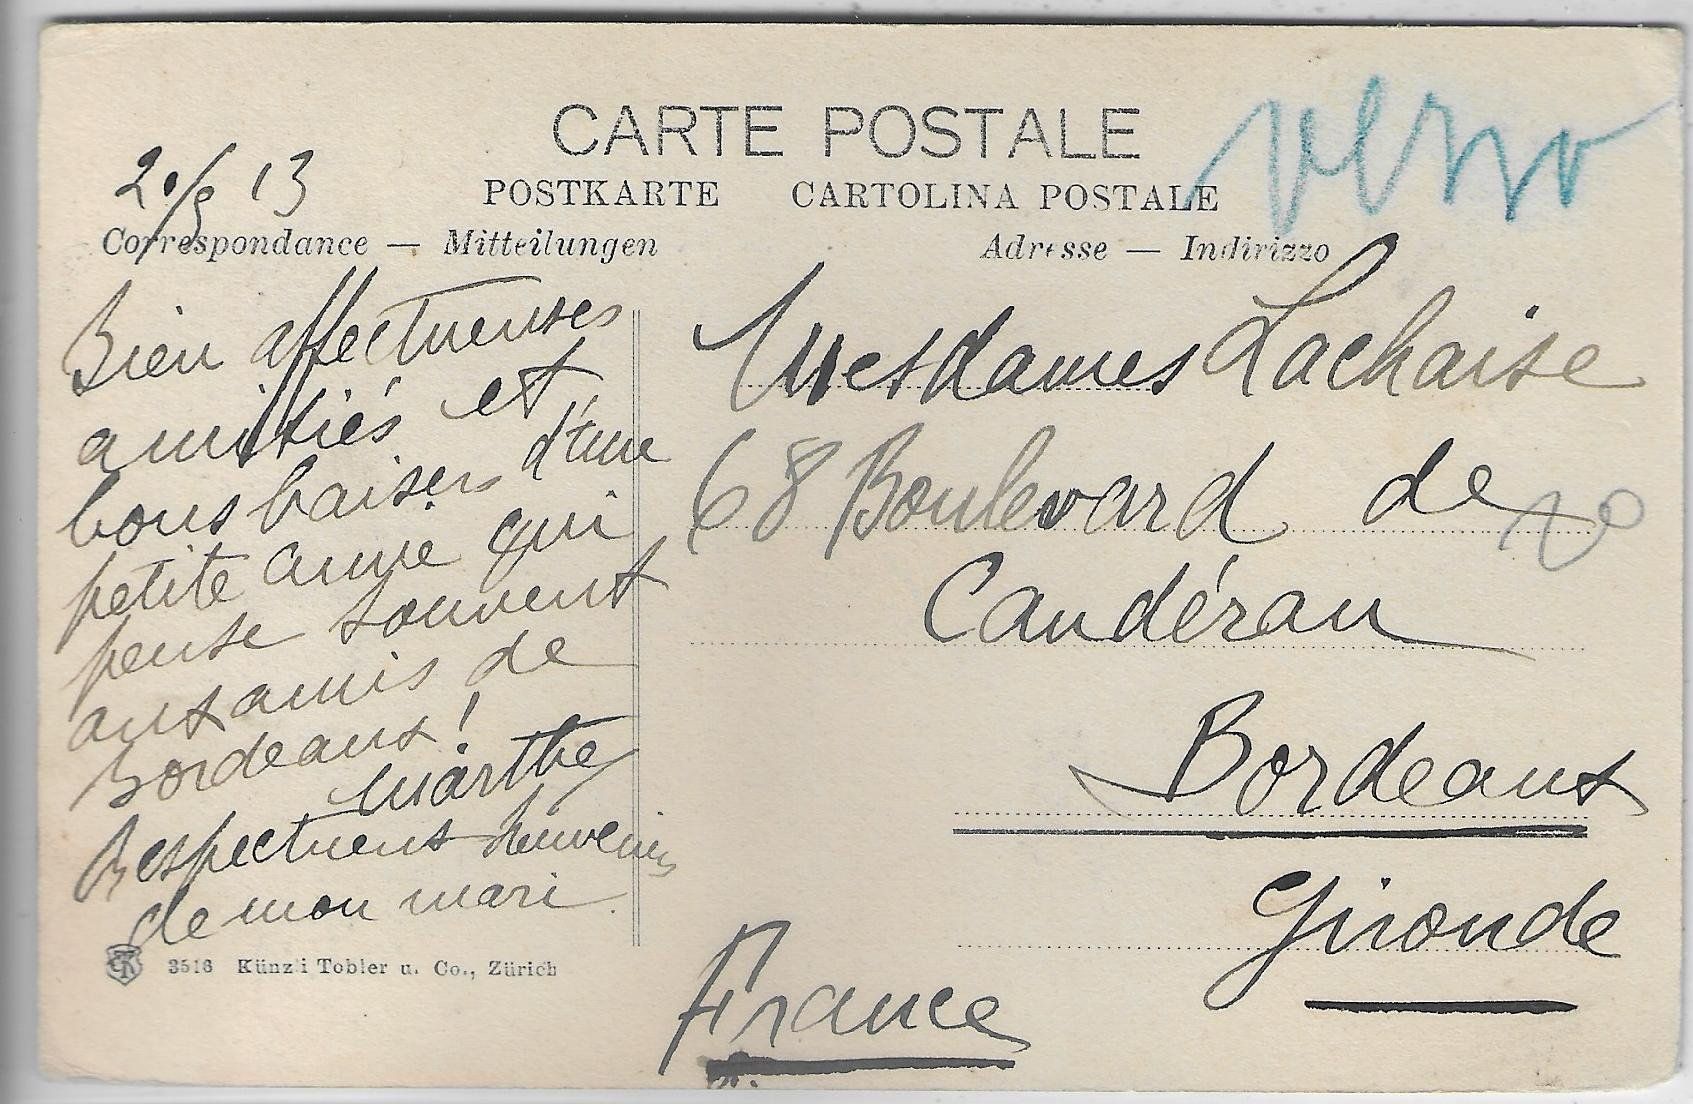 CARTE POSTALE
verso
POSTKARTE CARTOLINA POSTALE
20/9 13
Correspondance — Mitteilungen
Adresse — Indirizzo
Bien affectueuses
amitiés et
bons baisers d'une
petite amie qui
pense souvent
aux amis de
Bordeaux!
Marthe
Respectueux souvenirs
de mon mari
3516 Künzli Tobler u. Co., Zürich
Mesdames Lachaise
68 Boulevard de
Caudéran
Bordeaux
Gironde
France